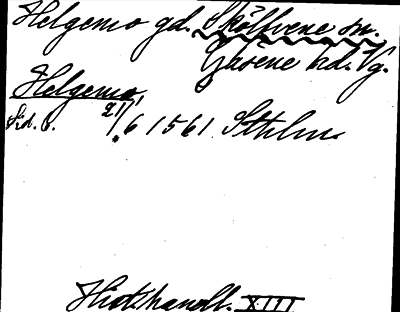 Helgemo gd. Skölvene sn.
Gäsene hd. Vg.
Helgemo
21/6 1561 Sthlm.
Hist. handl. XIII